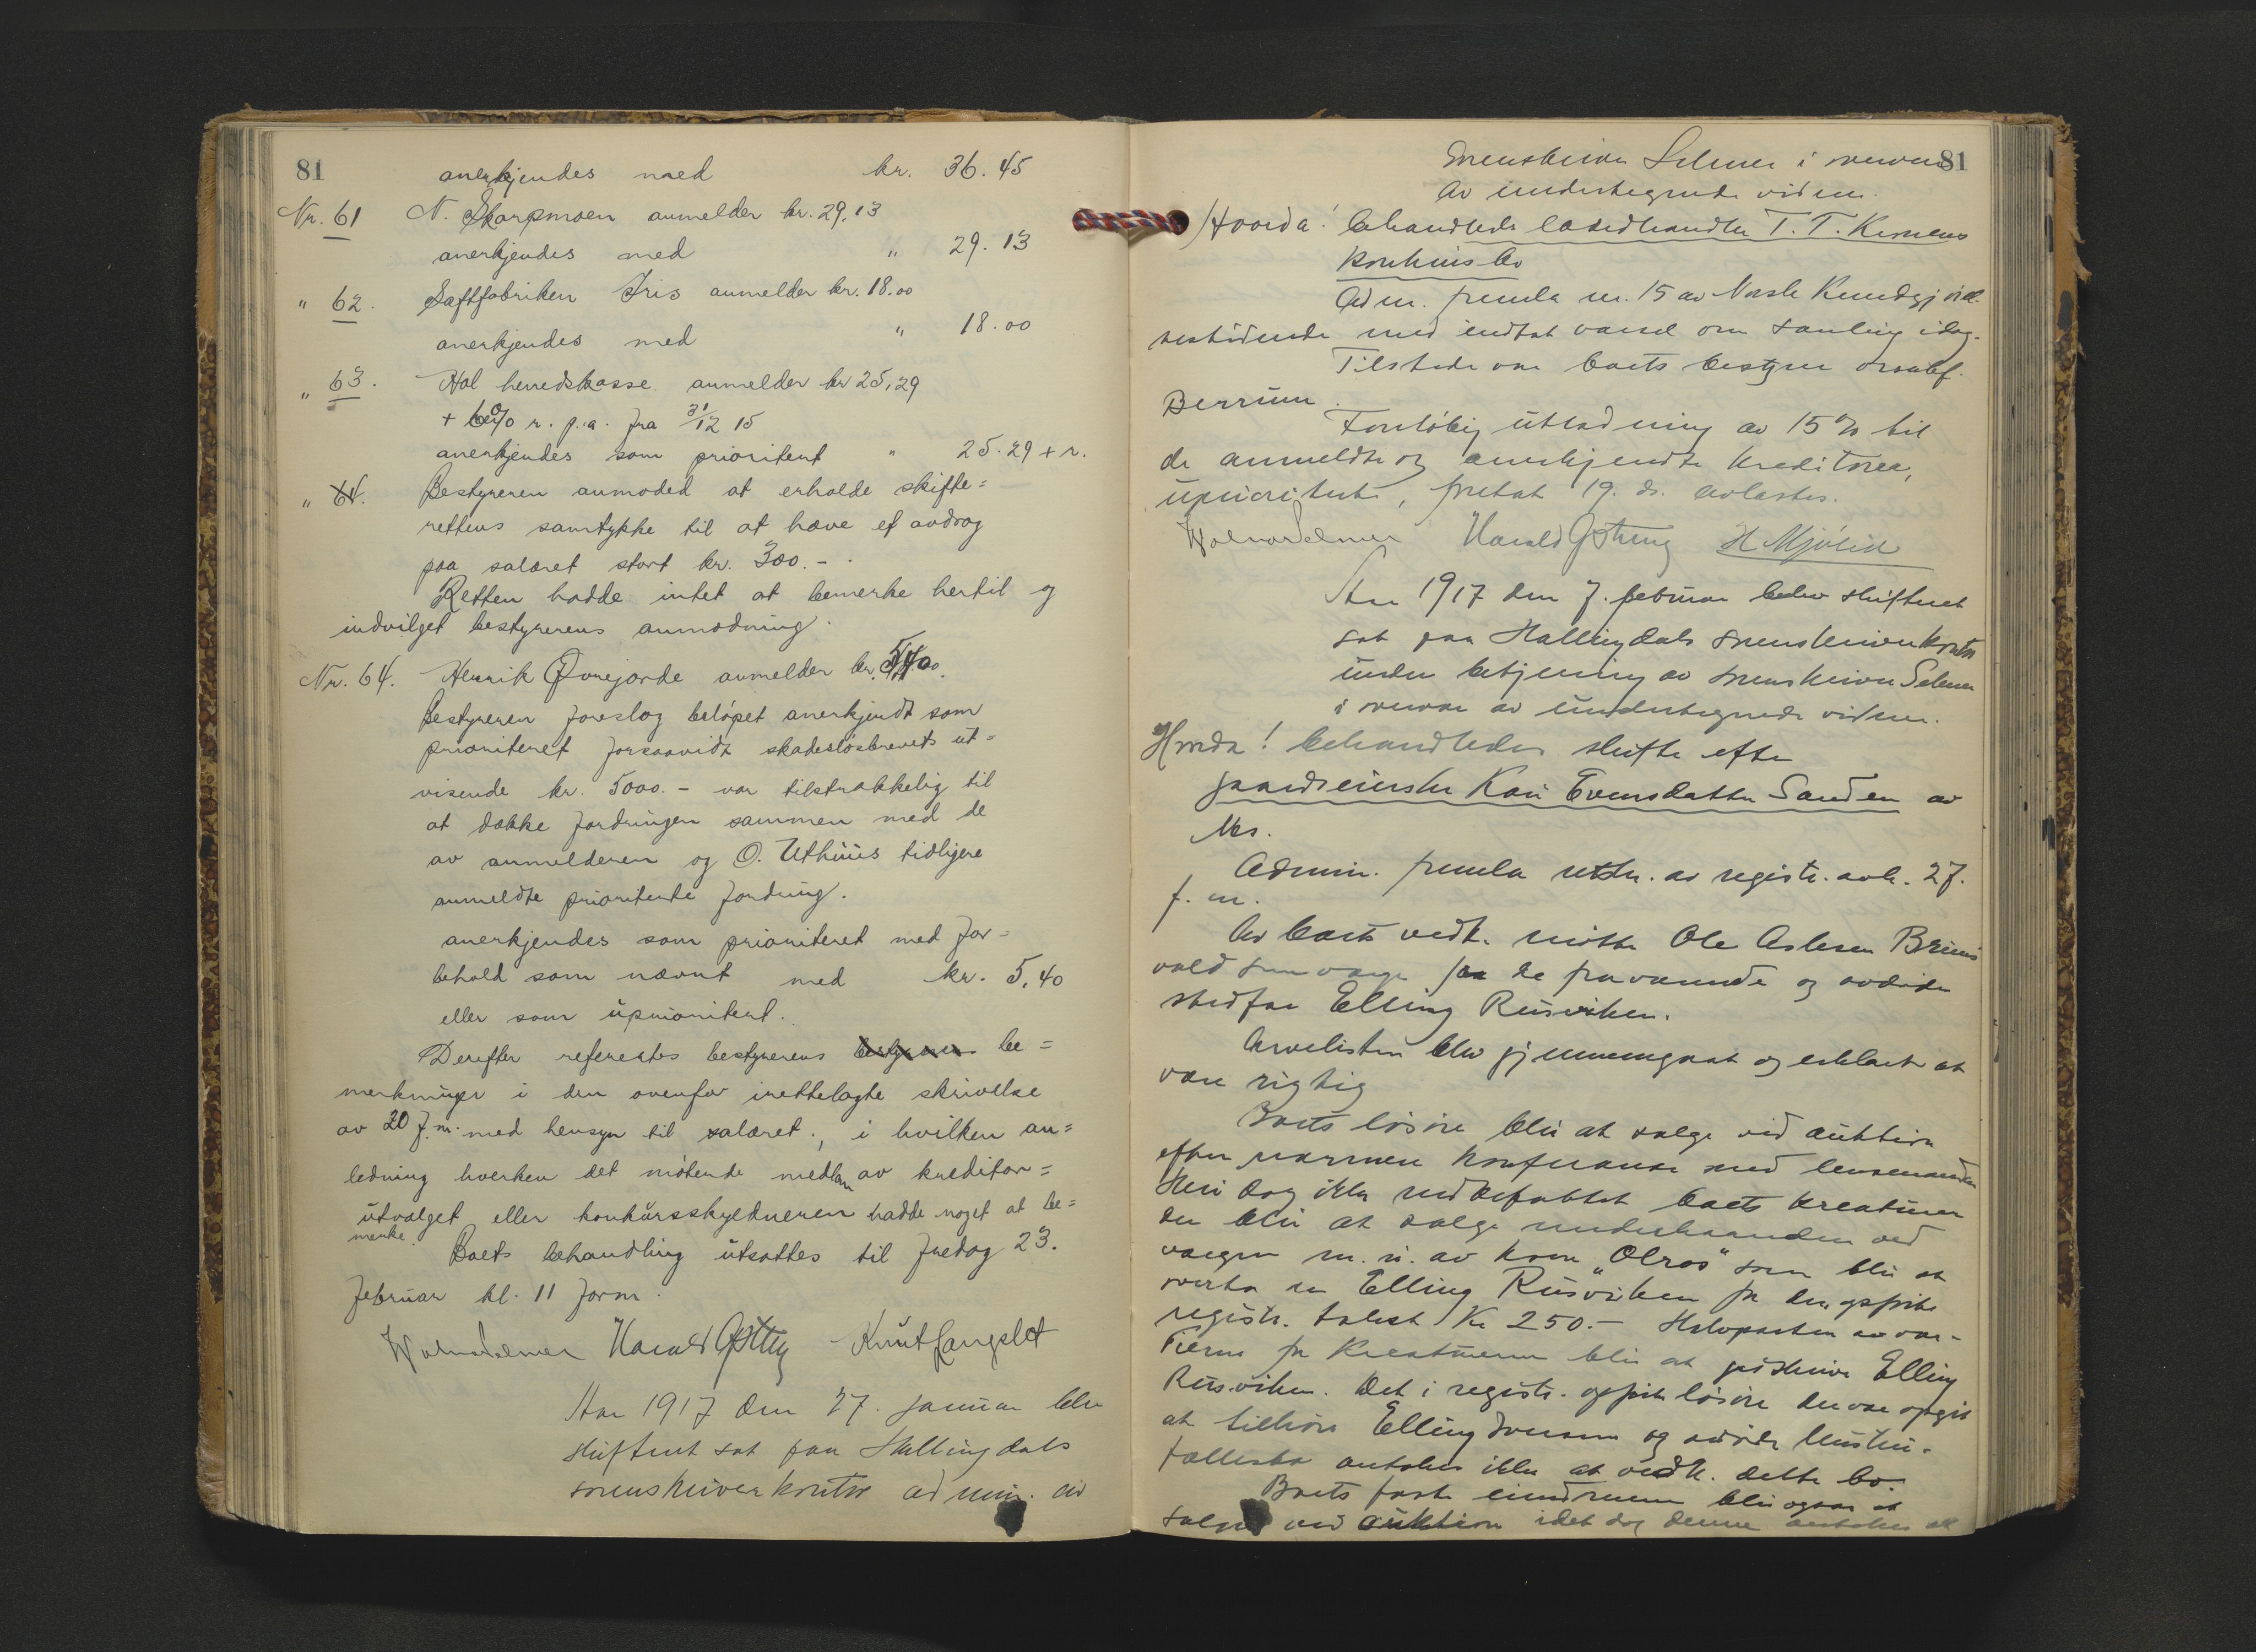 81
anerkjendes med kr. 36.45
Nr. 61 N. Skarpmoen anmelder kr. 29.13
anerkjendes med " 29.13
" 62. Saftfabriken Iris anmelder kr. 18.00
anerkjendes med " 18.00
" 63. Hol herredskasse anmelder kr 25,29
+ 6% r. p.a. fra 31/12 15
anerkjendes som prioritert " 25.29 + r.
" 64. Bestyreren anmoded at erholde skifte=
rettens samtykke til at hæve et avdrag
paa salæret stort kr. 300.-
Retten hadde intet at bemerke hertil og
indvilget bestyrerens anmodning.
Nr. 64. Henrik Øvrejorde anmelder kr.
Bestyreren foreslog beløpet anerkjendt som
prioriteret forsaavidt skadesløsbrevets ut=
visende kr. 5000.- var tilstrækkelig til
at dække fordringen sammen med de
av anmelderen og O. Uthuus tidligere
anmeldte prioriterte fordring.
anerkjendes som prioriteret med for=
behold som nævnt med kr. 5,40
eller som uprioritert.
Derefter referertes bestyrerens be=
merkninger i den ovenfor irettelagte skrivelse
av 20 f.m. med hensyn til salæret, i hvilken an=
ledning hverken det møtende medlem av kreditor=
utvalget eller konkursskyldneren hadde noget at be=
merke.
Boets behandling utsattes til fredag 23.
februar kl. 11 form.
Harald Knut Langslet
Aar 1917 den 27. januar blev
skifteret sat paa Hallingdals
sorenskriverkontor admin. av
81
sorenskriver Selmer i nærvær
av undertegnede vidner.
Hvorda! behandledes landhandler T. T.
konkursbo
Adm. freml. nr. 15 av Norsk Kundgjørel
sestidende med indtat varsel om samling idag.
Tilstede var boets bestyrer overretssf.
Berrum.
Foreløbig utlodning av 15% til
de anmeldte og anerkjendte kreditorer,
uprioriterte, foretat 19. ds. avlastes.
Harald H. Mjølid
Aar 1917 den 7. februar blev skifteret
sat paa Hallingdals sorenskriverkontor
under betjening av sorenskriver Selmer
i nærvær av undertegnede vidner.
Hvorda! behandledes skifte efter
gaardbruker Kari Evensdatter Sanden av
Nes.
Admin. fremla utskr. av registr. avh. 27.
f. m.
Av boets vedk. møtte Ole Aslesen
vold som verge for de fraværende og avdøde
stedfar Elling Rusviken.
Arvelisten blev gjennemgaat og erklært at
være rigtig
Boets løsøre blir at sælge ved auktion
efter nærmere konferanse med lensmanden
Heri dog ikke indbefattet boets kreaturer
der blir at sælge underhaanden ved
vergen m. u. av koen "Olros" som blir at
overta av Elling Rusviken for den opførte
registr. takst Kr 250.- Halvparten av var-
 for kreaturerne blir at godskrive Elling
Rusviken. Det i registr. opførte løsøre der var opgit
at tilhøre Elling Iversen og avdøde hustru
fælles antokes ikke at vedk. dette bo.
Boets faste eiendommer blir ogsaa at
sælge ved auktion idet dog denne antokes at